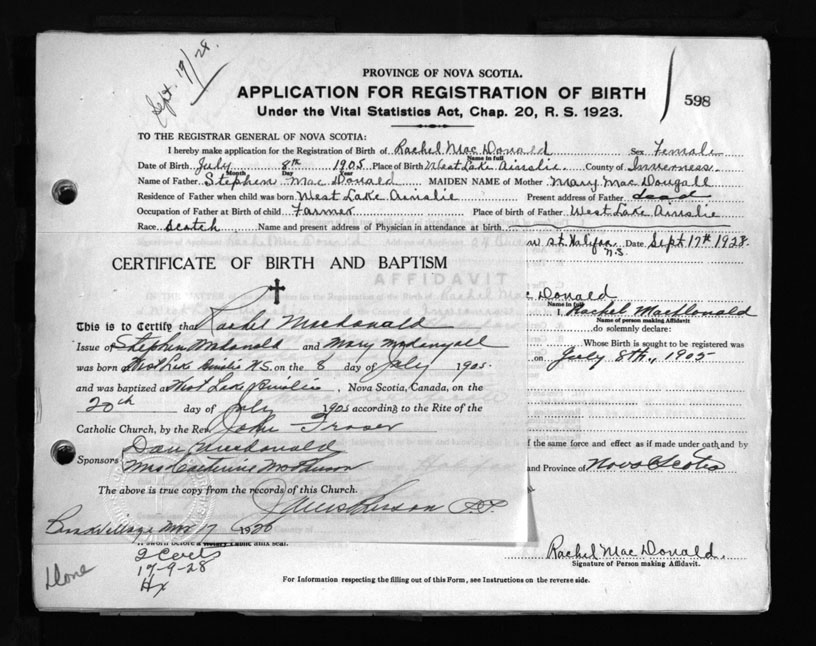 Sept. 19/28.
PROVINCE OF NOVA SCOTIA.
APPLICATION FOR REGISTRATION OF BIRTH
598
Under the Vital Statistics Act, Chap. 20, R. S. 1923.
TO THE REGISTRAR GENERAL OF NOVA SCOTIA:
I hereby make application for the Registration of Birth of Rachel Mac Donald Sex Female
Name in full
Date of Birth July 8th 1905 Place of Birth West Lake Ainslie. County of Inverness.
Month Day Year
Name of Father Stephen Mac Donald MAIDEN NAME of Mother Mary Mac Dougall
Residence of Father when child was born West Lake Ainslie Present address of Father dead
Occupation of Father at Birth of child Farmer Place of birth of Father West Lake Ainslie
Race Scotch Name and present address of Physician in attendance at birth
St. Halifax N.S. Date Sept 17th 1928.
CERTIFICATE OF BIRTH AND BAPTISM
AFFIDAVIT
This is to Certify that Rachel Macdonald
Issue of Stephen McDonald and Mary McDougall
was born West Lake Ainslie N.S. on the 8 day of July 1905
and was baptized at West Lake Ainslie, Nova Scotia, Canada, on the
20th day of July 1905 according to the Rite of the
Catholic Church, by the Rev John Fraser
Sponsors Dan Macdonald
Mrs Catherine
The above is true copy from the records of this Church.
P.P.
17 1926
Mac Donald
Name in full
I, Rachel MacDonald
Name of person making Affidavit
do solemnly declare:
Whose Birth is sought to be registered was
on July 8th, 1905
f the same force and effect as if made under oath and by
and Province of Nova Scotia
2 Certs
17-9-28
Hx
Done
Rachel Mac Donald.
Signature of Person making Affidavit.
For Information respecting the filling out of this Form, see Instructions on the reverse side.